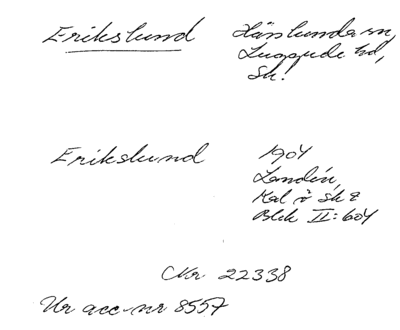 Erikslund Hässlunda sn,
Luggude hd,
Sk.
Erikslund 1904
Landin,
Kal ö Sk &
Blek II: 604
Nr 22338
Ur acc-nr 8557